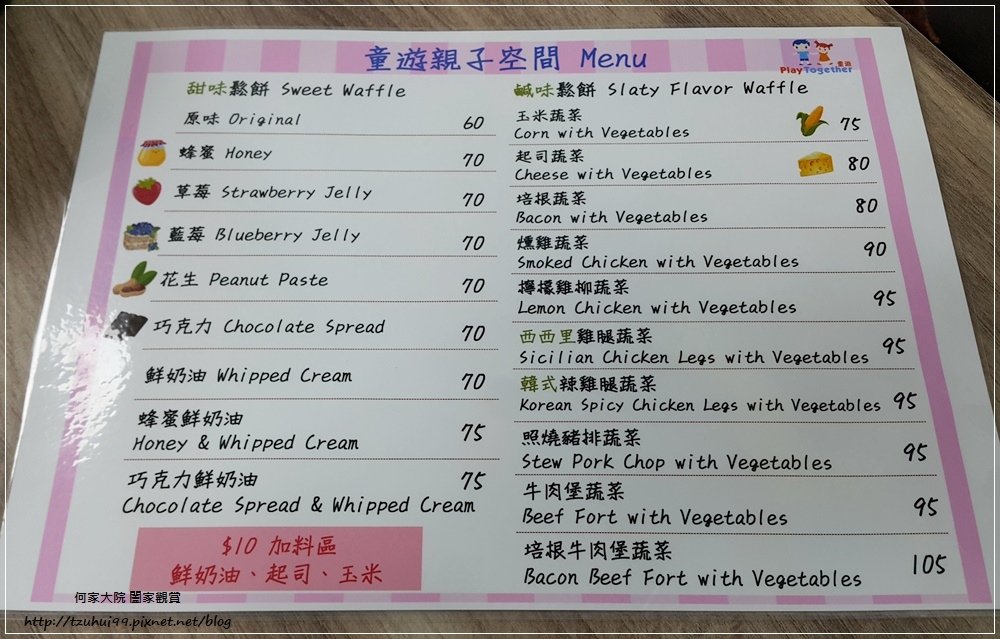 童遊親子空間 Menu
童遊
PlayTogether
甜味鬆餅 Sweet Waffle
原味 Original 60
蜂蜜 Honey 70
草莓 Strawberry Jelly 70
藍莓 Blueberry Jelly 70
花生 Peanut Paste 70
巧克力 Chocolate Spread 70
鮮奶油 Whipped Cream 70
蜂蜜鮮奶油
Honey & Whipped Cream 75
巧克力鮮奶油 75
Chocolate Spread & Whipped Cream
$10 加料區
鮮奶油、起司、玉米
鹹味鬆餅 Slaty Flavor Waffle
玉米蔬菜
Corn with Vegetables 75
起司蔬菜
Cheese with Vegetables 80
培根蔬菜
Bacon with Vegetables 80
燻雞蔬菜
Smoked Chicken with Vegetables 90
檸檬雞柳蔬菜
Lemon Chicken with Vegetables 95
西西里雞腿蔬菜
Sicilian Chicken Legs with Vegetables 95
韓式辣雞腿蔬菜
Korean Spicy Chicken Legs with Vegetables 95
照燒豬排蔬菜
Stew Pork Chop with Vegetables 95
牛肉堡蔬菜
Beef Fort with Vegetables 95
培根牛肉堡蔬菜
Bacon Beef Fort with Vegetables 105
何家大院 闔家觀賞
http://tzuhui99.pixnet.net/blog